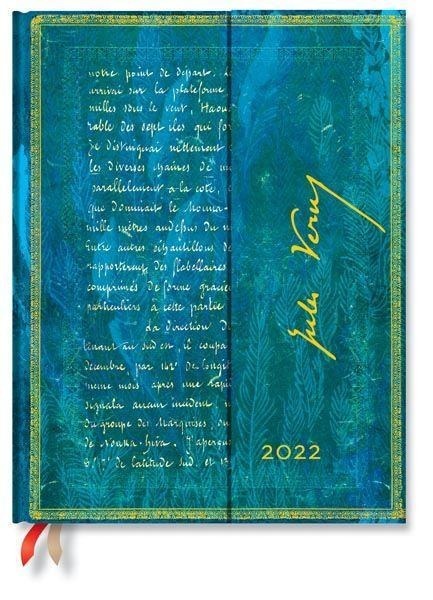 notre point de départ. Le
arrivai sur la plateforme
milles sous le vent, Haou
rable des sept iles qui for
Je distinguai nettement c
les diverses chaines de m
parallelement à la côte, e
que dominait le Mouna-
mille mètres audessus du n
Entre autres échantillons de
rapporterent des flabellaires
comprimés de forme gracieu
particuliers à cette partie
La Direction D
tenant au sud est, il coupa
decembre, par 142° de longit
meme mois après une rapi
signala aucun incident, n
du groupe des Marquises, ou
de Nouka-hiva. J'aperçus
de latitude sud, et 13
Jules Verne
2022